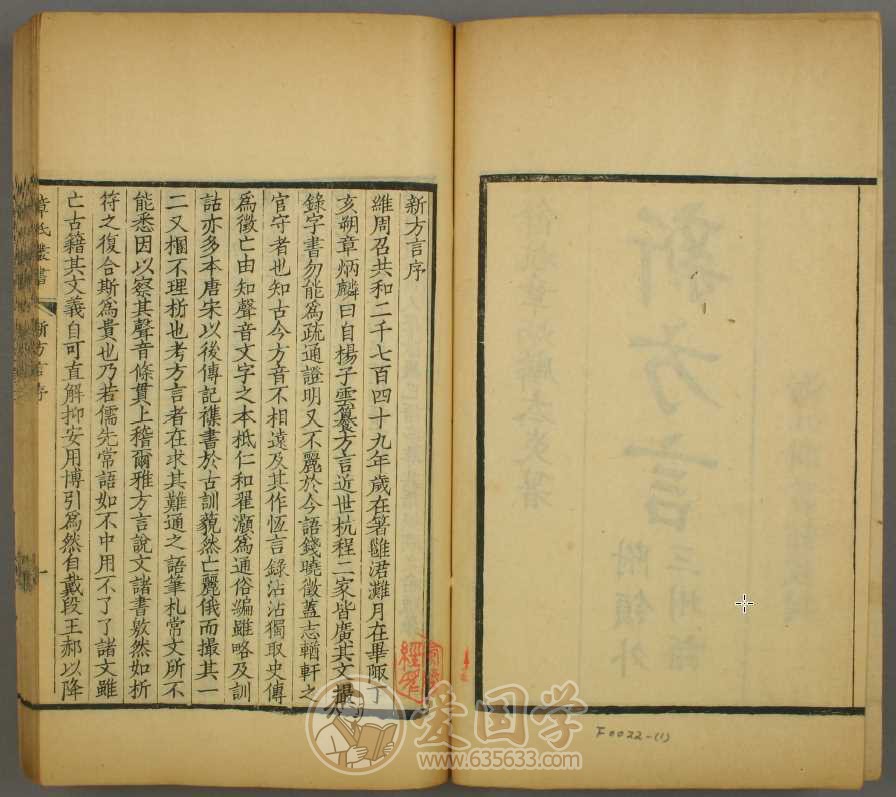 新方言序
維周召共和二千七百四十九年歲在箸雝涒灘月在畢陬丁
亥朔章炳麟曰自楊子雲纂方言近世杭程二家皆廣其文撮
錄字書勿能為疏通證明又不麗於今語錢曉徵蓋志輶軒之
官守者也知古今方音不相遠及其作恆言錄沾沾獨取史傳
為徵亡由知聲音文字之本柢仁和翟灝為通俗編雖略及訓
詁亦多本唐宋以後傳記襍書於古訓藐然亡麗俄而撮其一
二又棞不理析也考方言者在求其難通之語筆札常文所不
能悉因以察其聲音條貫上稽爾雅方言說文諸書敫然如析
符之復合斯為貴也乃若儒先常語如不中用不了了諸文雖
亡古籍其文義自可直解抑安用博引為然自戴段王郝以降
章氏叢書
新方言序
一
新方言
附領外
三州語
F0022-(1)
爱国学
www.635633.com